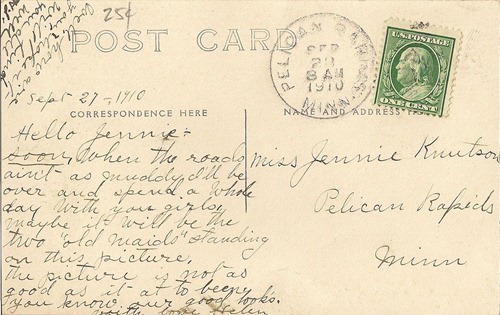 25¢
POST CARD
PELICAN RAPIDS
SEP
29
8 AM
1910
MINN.
U.S. POSTAGE
ONE CENT
Sept 27-1910
CORRESPONDENCE HERE
NAME AND ADDRESS HERE
Hello Jennie:-
soon, When the roads
ain't as muddy I'll be
over and spend a whole
day with you girls,
maybe it will be the
two "old maids" standing
on this picture,
the picture is not as
good as it at to been,
you know our good looks.
with love Helen
Miss Jennie Knutson
Pelican Rapids
Minn